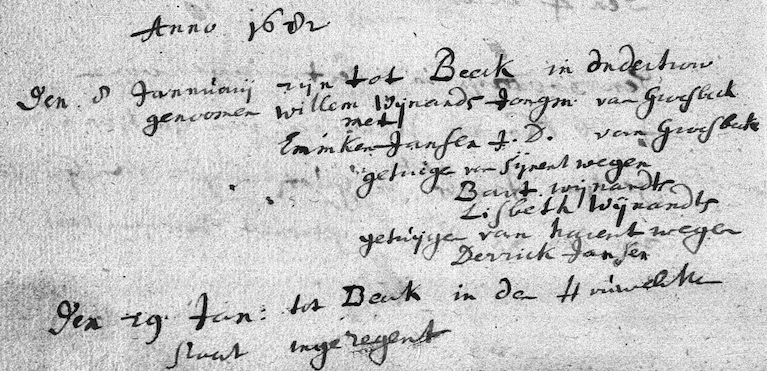 Anno 1682
Den 8 Jannuarij zijn tot Beeck in ondertrow
genoomen Willem Wijnands Jongm van Groesbeek
met
Enniken Jansen J. D. van Groesbeek
getuigen van sijnent wegen
Bart wijnandts
Lisbeth Wijnandts
getuijgen van harent wegen
Derrick Jansen
Den 29 Jan: tot Beek in den Houwelicken
staat ingezegent